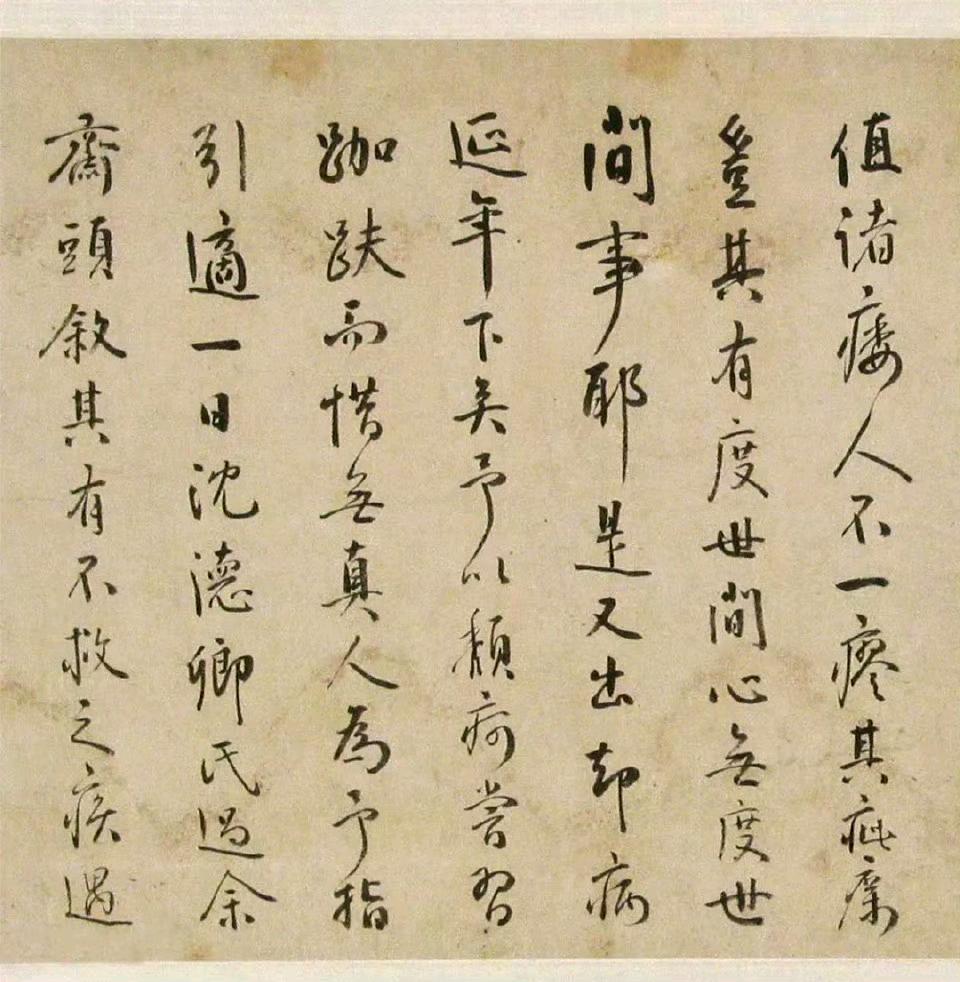 值諸痿人不一瘳其疵癘
豈其有度世間心無度世
間事耶是又出却病
延年下矣予以頹疴嘗習
跏趺而惜無真人為予指
引適一日沈德卿氏過余
齋頭敘其有不救之疾遇